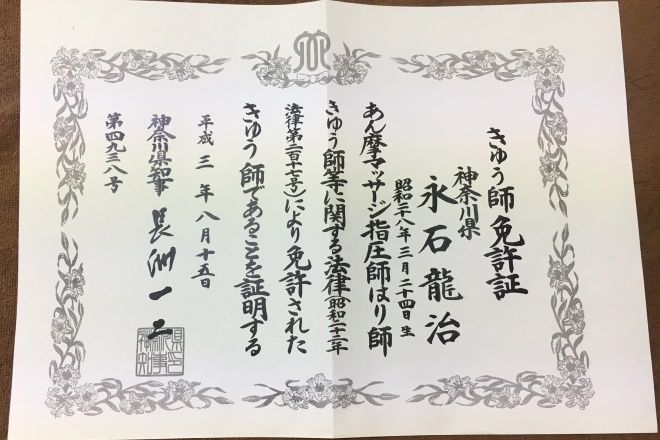 きゆう師免許証
神奈川県
永石龍治
昭和二十八年三月二十四日生
あん摩マッサージ指圧師はり師
きゆう師等に関する法律(昭和二十二年
法律第二百十七号)により免許された
きゆう師であることを証明する
平成三年八月十五日
神奈川県知事 長洲一二
第四九三八号